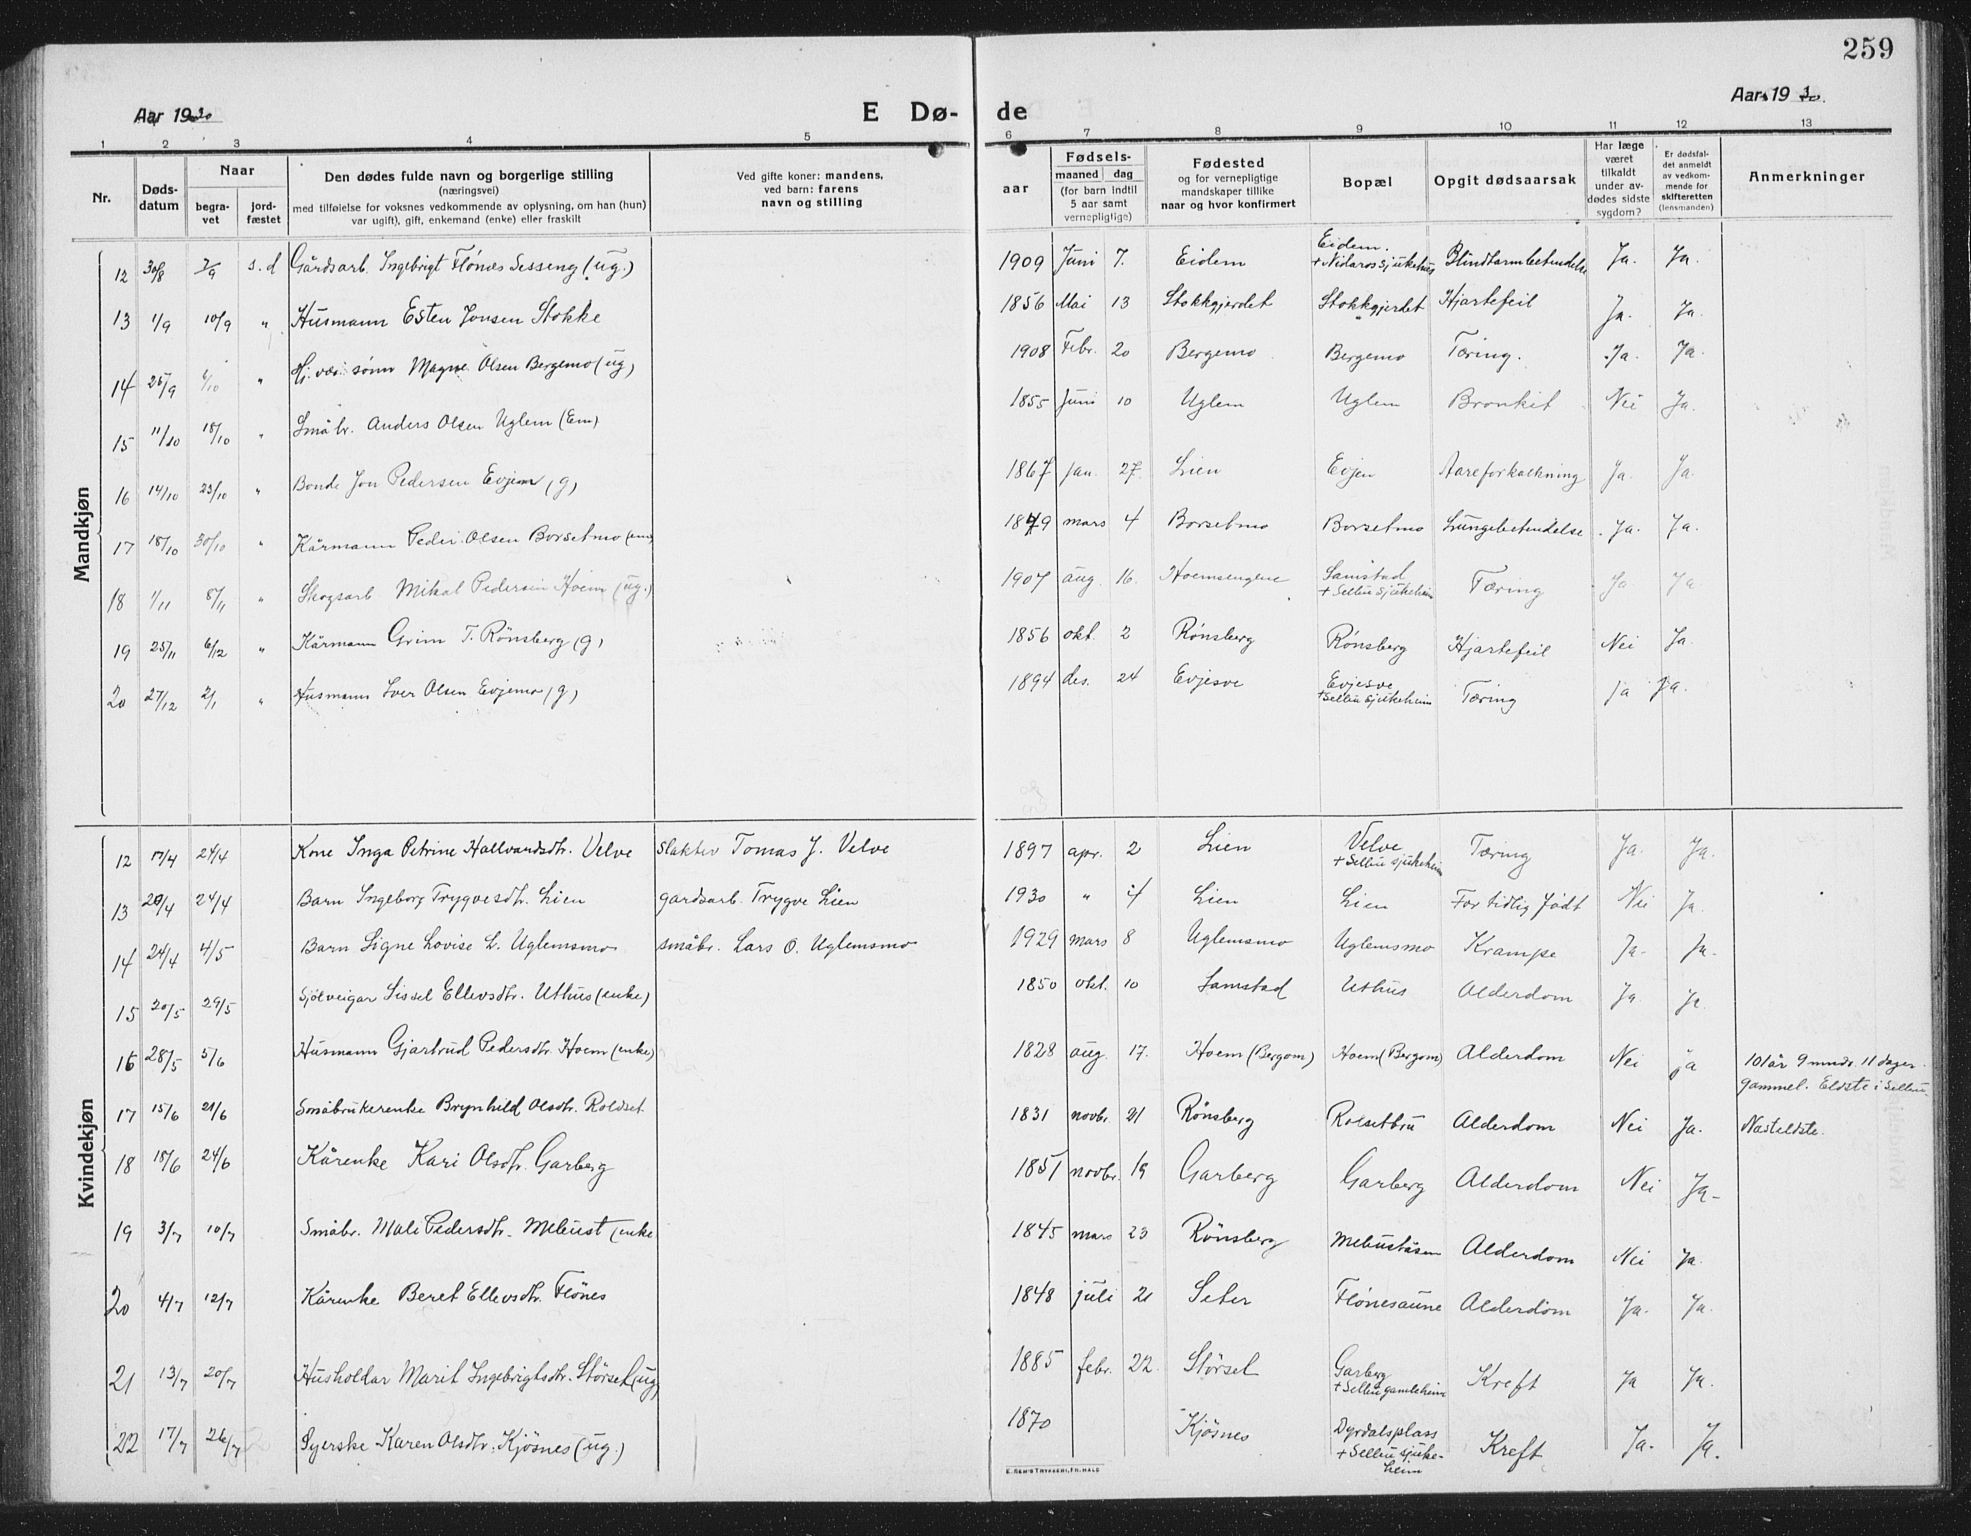 259
Aar 1930 E Dø- de Aar 1930.
1 2 3 4 5 6 7 8 9 10 11 12 13
Nr. Døds-datum Naar begra-vet jord-fæstet
Den dødes fulde navn og borgerlige stilling
(næringsvei)
med tilføielse for voksnes vedkommende av oplysning, om han (hun)
var ugift), gift, enkemand (enke) eller fraskilt
Ved gifte koner: mandens,
ved barn: farens
navn og stilling
Fødsels-
aar maaned dag
(for barn indtil
5 aar samt
vernepligtige)
Fødested
og for vernepligtige
mandskaper tillike
naar og hvor konfirmert
Bopæl
Opgit dødsaarsak
Har læge
været
tilkaldt
under av-
dødes sidste
sygdom?
Er dødsfal-
det anmeldt
av vedkom-
mende for
skifteretten
(lensmanden)
Anmerkninger
Mandkjøn
12 30/8 7/9 s.d Gårdsarb. Ingebrigt Flönes Sesseng (ug.) 1909 Juni 7. Eidem Eidem. + Nidaros sjukehus Blindtarmbetendelse Ja. Ja.
13 1/9 10/9 " Husmann Esten Jonsen Stokke 1856 Mai 13 Stokkgjerdet Stokkgjerdet Hjartefeil Ja. Ja.
14 25/9 /10 " sønn Magne Olsen Bergemo (ug) 1908 Febr. 20 Bergemo Bergemo Tæring. Ja. Ja.
15 11/10 18/10 " Småbr. Anders Olsen Uglem (Em) 1855 Juni 10 Uglem Uglem Bronkit Nei Ja.
16 14/10 23/10 " Bonde Jon Pedersen Evjem (g) 1867 Jan. 27. Lien Evjen Aareforkalkning Ja. Ja.
17 18/10 30/10 " Kårmann Peder Olsen Borsetmo (em) 1849 mars 4 Borsetmo Borsetmo Lungebetendelse Ja. Ja.
18 1/11 8/11 " Skogsarb. Mikal Pedersen Hoem (ug.) 1907 aug. 16. Hoemsengene Samstad + Selbu sjukeheim Tæring Ja Ja
19 25/11 6/12 " Kårmann Grim T. Rönsberg (g) 1856 okt. 2 Rönsberg Rönsberg Hjartefeil Nei Ja.
20 27/12 2/1 " Husmann Iver Olsen Evjemo (g) 1894 des. 24 Evjesve Evjesve + Selbu sjukeheim Tæring Ja Ja.
Kvindekjøn
12 17/4 24/4 Kone Inga Petrine Hallvardsdtr. Velve Slakter Tomas J. Velve 1897 apr. 2 Lien Velve + Selbu sjukeheim Tæring Ja. Ja.
13 20/4 24/4 Barn Ingeborg Trygvesdtr. Lien gardsarb. Trygve Lien 1930 " 4 Lien Lien For tidlig født Nei Ja.
14 24/4 4/5 Barn Signe Lovise L. Uglemsmo småbr. Lars O. Uglemsmo 1929 mars 8 Uglemsmo Uglemsmo Krampe Ja- Ja.
15 20/5 29/5 Sjölveigar Sissel Ellevsdtr. Uthus (enke) 1850 okt. 10 Samstad Uthus Alderdom Ja. Ja.
16 28/5 5/6 Husmann Gjartrud Pedersdtr. Hoem (enke) 1828 aug. 17. Hoem (Bergom) Hoem (Bergom) Alderdom Nei ja 101 år 9 mndr. 11 dager gammel. Eldste i Selbu
17 15/6 21/6 Småbrukerenke Brynhild Olsdtr. Roldset 1831 novbr. 21 Rönsberg Rolsetbru Alderdom Nei Ja. Nesteldste.
18 18/6 24/6 Kårenke Kari Olsdtr. Garberg 1851 novbr. 19 Garberg Garberg Alderdom Nei Ja-
19 3/7 10/7 Småbr. Mali Pedersdtr. Mebust (enke 1845 mars 23 Rönsberg Mebuståsen Alderdom Nei Ja.
20 4/7 12/7 Kårenke Beret Ellevsdtr. Flönes 1848 juli 21 Seter Flönesaune Alderdom Ja. Ja.
21 13/7 20/7 Husholdar Marit Ingebrigtsdtr. Störset (ug) 1885 febr. 22. Störset Garberg + Selbu gamleheim Kreft Ja Ja.
22 17/7 26/7 Syerske Karen Olsdtr. Kjösnes (ug.) 1870 Kjösnes Dyrdalsplass + Selbu sjuke-heim Kreft Ja. Ja.
E. SEM'S TRYKKERI, FR.HALD